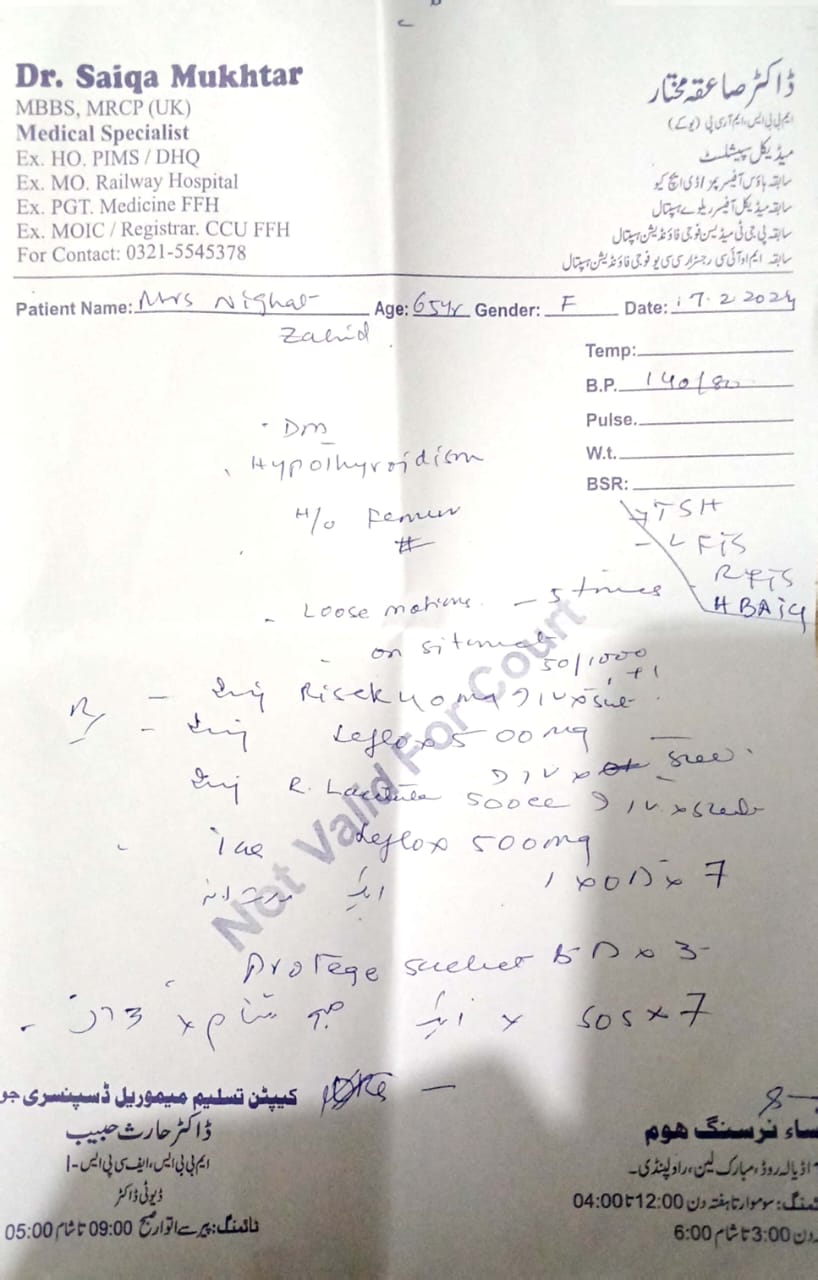 Dr. Saiqa Mukhtar
MBBS, MRCP (UK)
Medical Specialist
Ex. HO. PIMS / DHQ
Ex. MO. Railway Hospital
Ex. PGT. Medicine FFH
Ex. MOIC / Registrar. CCU FFH
For Contact: 0321-5545378
ڈاکٹر صاعقہ مختار
ایم بی بی ایس، ایم آر سی پی (یو کے)
میڈیکل سپیشلسٹ
سابقہ ہاؤس آفیسر پمز / ڈی ایچ کیو
سابقہ میڈیکل آفیسر ریلوے ہسپتال
سابقہ پی جی ٹی میڈیسن فوجی فاؤنڈیشن ہسپتال
سابقہ ایم او آئی سی رجسٹرار سی سی یو فوجی فاؤنڈیشن ہسپتال
Patient Name: Mrs Nighat Age: 65yr Gender: F Date: 17.2 2024
Zahid
Temp:
B.P. 140/80
Pulse.
W.t.
BSR:
DM
Hypothyroidism
H/o Femur
#
TSH
- LFTS
- RFTS
HBA1C
- Loose motions - 5 times
- on sitamet
50/1000
1+1
R/ - Inj Risek 40mg IV x
- Inj Leflox 500mg
IV x
Inj R. Lactate 500cc IV x
Leflox 500mg
1 x OD x 7
روزانہ ایک
Protege sachet BD x 3
3 دن x صبح شام x ایک x SOS x 7
Not Valid For Court
کیپٹن تسلیم میموریل ڈسپنسری
ڈاکٹر حارث حبیب
ایم بی بی ایس، ایف سی پی ایس-I
ڈیوٹی ڈاکٹر
ٹائمنگ: پیر سے اتوار صبح 09:00 تا شام 05:00
نرسنگ ہوم
اڈیالہ روڈ، مبارک لین، راولپنڈی۔
سوموار تا ہفتہ دن 12:00 تا 04:00
دن 3:00 تا شام 6:00